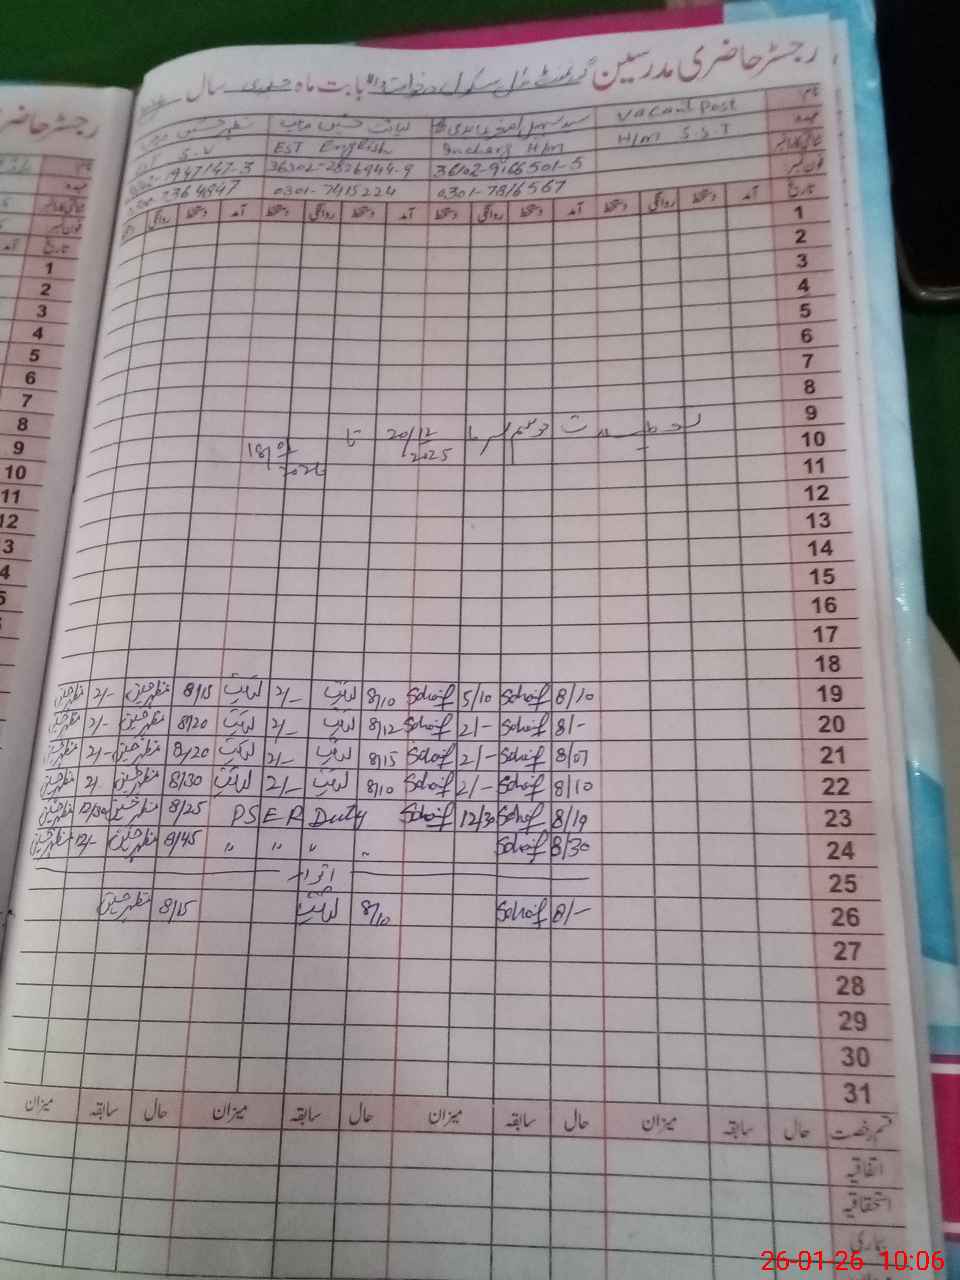 رجسٹر حاضری مدرسین گورنمنٹ مڈل سکول بابت ماہ جنوری سال
نام Vacant Post لیاقت حسین صاحب
عہدہ H/M S.S.T Incharg H/M EST English S.V
شناختی کارڈ نمبر 36102-9166501-5
فون نمبر 0301-7816567 0301-7415224
تاریخ آمد دستخط روانگی دستخط آمد دستخط روانگی دستخط آمد دستخط روانگی دستخط آمد دستخط روانگی
1
2
3
4
5
6
7
8
9
10 تعطیلات موسم سرما 20/12/2025 تا 18/01/2026
11
12
13
14
15
16
17
18
19 8/10 Sohaif 5/10 Sohaif 8/10 لیاقت 2/- لیاقت 8/15 مظہر حسین 2/- مظہر حسین
20 8/- Sohaif 2/- Sohaif 8/12 لیاقت 2/- لیاقت 8/20 مظہر حسین 2/- مظہر حسین
21 8/07 Sohaif 2/- Sohaif 8/15 لیاقت 2/- لیاقت 8/20 مظہر حسین 2/- مظہر حسین
22 8/10 Sohaif 2/- Sohaif 8/10 لیاقت 2/- لیاقت 8/30 مظہر حسین 2/- مظہر حسین
23 8/19 Sohaif 12/30 Sohaif PSER Duty 8/25 مظہر حسین 12/30 مظہر حسین
24 8/30 Sohaif " " " " 8/45 مظہر حسین 12/- مظہر حسین
25 اتوار
26 8/- Sohaif 8/10 لیاقت 8/15 مظہر حسین
27
28
29
30
31
قسم رخصت حال سابقہ میزان حال سابقہ میزان حال سابقہ میزان حال سابقہ میزان
اتفاقیہ
استحقاقیہ
بیماری
رجسٹر حاضری
نام
عہدہ
شناختی کارڈ نمبر
فون نمبر
تاریخ آمد
1
2
3
4
5
6
7
8
9
10
11
12
26-01-26 10:06